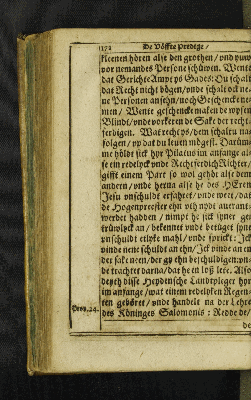 1172 De Vöffte Predige /
kleenen hören alse den grothen / vnd vuw
vor nemandes Persone schüwen. Wente
dat Gerichte Ampt ys Gades: Du schalt
dat Recht nicht bögen / vnde schalt ock ne-
ne Persone ansehn / noch Geschencke ne-
men / Wente geschencke maken de wysen
Blindt / vnde vorkeren de Sake der recht-
ferdigen. Wat recht ys / dem schaltu na-
folgen / vp dat du leuen mögest. Darüm-
me höldt sick hyr Pilatus im anfange als
se ein redelyck vnde Rechtferdich Richter /
gifft einem Part so wol gehör alse dem
andern / vnde
Jesu vnschuldt erfahret / vnde wert / dat
de Hogenprester ehn vth nydt auerant-
werdet hadden / nimpt he sick syner ge-
trüwlyck an / bekennet vnde betüget syne
vnschuldt etlyke mahl / vnde sprickt: Jck
vinde nene schuldt an ehn / Jck vinde an en
der sake neen / der gy ehn beschuldigen: vn-
de trachtet darna / dat he en loß lete. Also
deyth disse Heydensche Landtpleger hyr
im anfange / wat einem redelyken Regen-
ten geböret / vnde handelt na der Lehre
des Köninges Salomonis: Redde de /
Prov. 24.
de